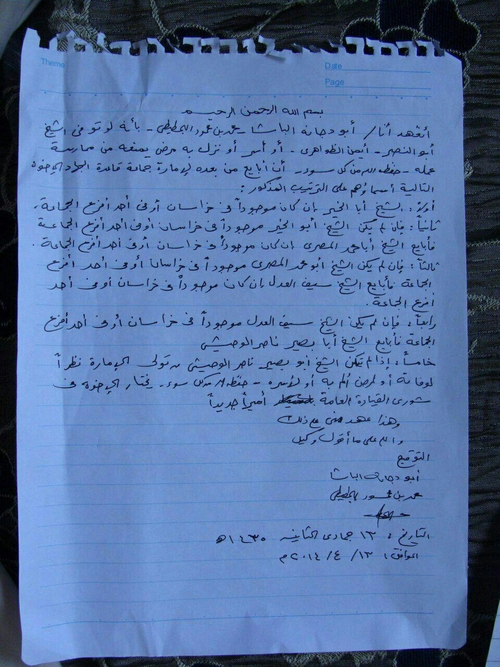 Theme
Date
Page
بسم الله الرحمن الرحيم
أتعهد أنا/ أبو دجانة الباشا - محمد بن محمود البحطيطي - بأنه لو توفى الشيخ
أبو الفتح أيمن الظواهري - أو أسر أو نزل به مرض يمنعه من ممارسة
عمله - حفظه الله من كل سوء - أن أبايع من بعده لإمارة جماعة قاعدة الجهاد الإخوة
التالية أسماؤهم على الترتيب المذكور:
أولاً: الشيخ أبا الخير إن كان موجوداً في خراسان أو في أحد أفرع الجماعة.
ثانياً: فإن لم يكن الشيخ: أبو الخير موجوداً في خراسان أو في أحد أفرع الجماعة
فأبايع الشيخ أبا محمد المصري إن كان موجوداً في خراسان أو في أحد أفرع الجماعة.
ثالثاً: فإن لم يكن الشيخ أبو محمد المصري موجوداً في خراسان أو في أحد أفرع
الجماعة فأبايع الشيخ سيف العدل إن كان موجوداً في خراسان أو في أحد
أفرع الجماعة.
رابعاً: فإن لم يكن الشيخ سيف العدل موجوداً في خراسان أو في أحد أفرع
الجماعة فأبايع الشيخ أبا بصير ناصر الوحيشي
خامساً: إذا لم يتمكن الشيخ أبو بصير ناصر الوحيشي من تولى الإمارة نظراً
لوفاته أو لمرض ألم به أو لأسره - حفظه الله من كل سوء. يختار الإخوة في
شورى القيادة العامة أميراً جديداً
وهذا عهد مني على ذلك
والله على ما أقول وكيل
التوقيع
أبو دجانة الباشا
محمد بن محمود البحطيطي
التاريخ: ١٣ جمادى الثانية ١٤٣٥ هـ
الموافق: ١٣/ ٤/ ٢٠١٤ م